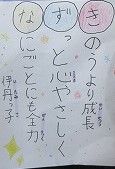 きのうより成長
ずっと心やさしく
なにごとにも全力
伊丹っ子